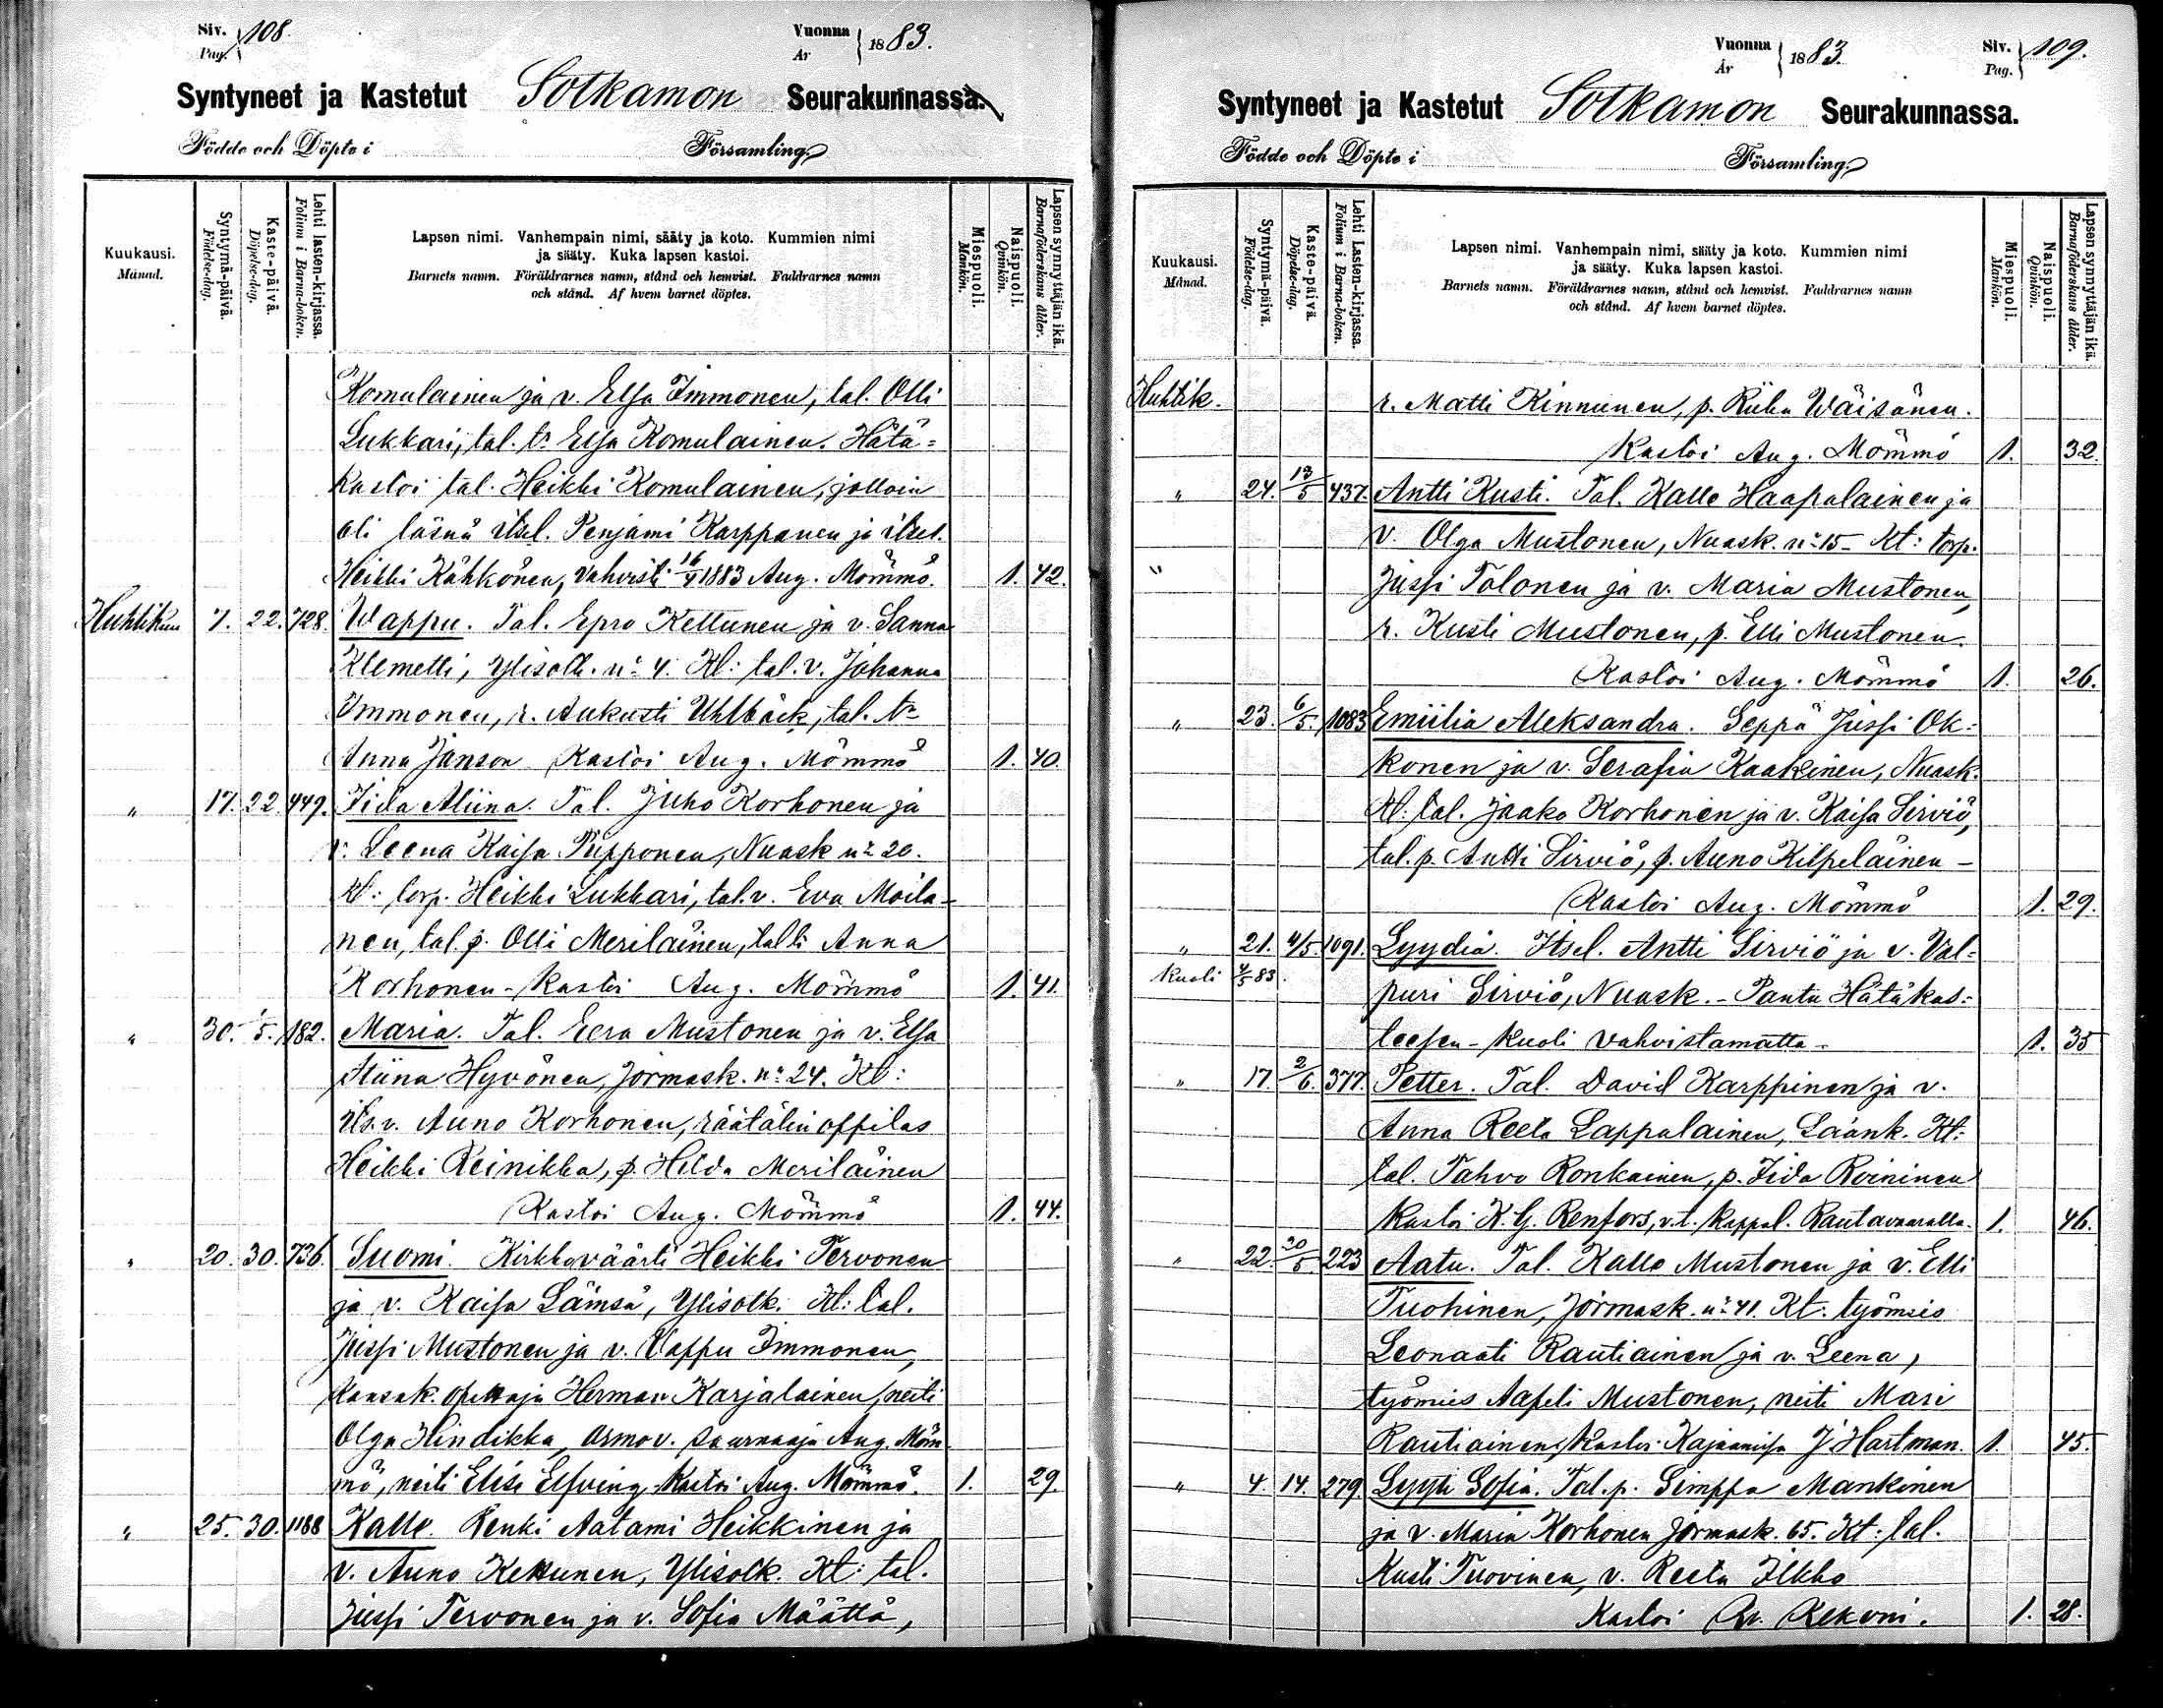 Siv. 108.
Pag.
Vuonna 1883.
År
Syntyneet ja Kastetut Sotkamon Seurakunnassa.
Födde och Döpte i Församling.
Kuukausi.
Månad.
Syntymä-päivä.
Födelse-dag.
Kaste-päivä.
Döpelse-dag.
Lehti lasten-kirjassa.
Folium i Barna-boken.
Lapsen nimi. Vanhempain nimi, sääty ja koto. Kummien nimi
ja sääty. Kuka lapsen kastoi.
Barnets namn. Föräldrarnes namn, stånd och hemvist. Faddrarnes namn
och stånd. Af hvem barnet döptes.
Miespuoli.
Mankön.
Naispuoli.
Qvinkön.
Lapsen synnyttäjän ikä.
Barnaföderskans ålder.
Komulainen ja v. Elsa Immonen, tal. Olli
Lukkari, tal. tr Elsa Komulainen. Hätä=
kastoi tal. Heikki Komulainen, jolloin
oli läsnä itsel. Penjami Karppanen ja itsel.
Heikki Kähkönen, vahvisti 16/4 1883 Aug. Mömmö. 1. 42.
Huhtikuu 7. 22. 728. Wappu. Tal. Epro Kettunen ja v. Sanna
Klemetti, Ylisotk. no 4. Kt: tal. v. Johanna
Immonen, r. Aukusti Uhlbäck, tal. tr
Anna Janson Kastoi Aug. Mömmö 1. 40.
" 17. 22. 449. Iida Aliina. Tal. Juho Korhonen ja
v. Leena Kaisa Piipponen, Nuask no 20.
Kt: torp. Heikki Lukkari, tal. v. Eva Moila-
nen, tal. p. Olli Meriläinen, tal tr Anna
Korhonen - Kastoi Aug. Mömmö 1. 41.
" 30. 1/5. 182. Maria. Tal. Eera Mustonen ja v. Elsa
Stiina Hyvönen, Jormask. no 24. Kt:
its. v. Auno Korhonen, räätälin oppilas
Heikki Reinikka, p. Hilda Meriläinen
Kastoi Aug. Mömmö 1. 44.
" 20. 30. 736. Suomi. Kirkkoväärti Heikki Tervonen
ja v. Kaisa Lämsä, Ylisotk. Kt: tal.
Jussi Mustonen ja v. Vappu Immonen,
kansak. opettaja Herman Karjalainen, neiti
Olga Hindikka, armov. saarnaaja Aug. Möm
mö, neiti Elise Elfving - Kastoi Aug. Mömmö. 1. 29.
" 25. 30. 1188 Kalle. Renki Aatami Heikkinen ja
v. Auno Kettunen, Ylisotk. Kt: tal.
Jussi Tervonen ja v. Sofia Määttä,
Vuonna 1883.
År
Siv. 109.
Pag.
Syntyneet ja Kastetut Sotkamon Seurakunnassa.
Födde och Döpte i Församling.
Kuukausi.
Månad.
Syntymä-päivä.
Födelse-dag.
Kaste-päivä.
Döpelse-dag.
Lehti Lasten-kirjassa.
Folium i Barna-boken.
Lapsen nimi. Vanhempain nimi, sääty ja koto. Kummien nimi
ja sääty. Kuka lapsen kastoi.
Barnets namn. Föräldrarnes namn, stånd och hemvist. Faddrarnes namn
och stånd. Af hvem barnet döptes.
Miespuoli.
Mankön.
Naispuoli.
Qvinkön.
Lapsen synnyttäjän ikä.
Barnaföderskans ålder.
Huhtik. r. Matti Kinnunen, p. Riika Wäisänen.
Kastoi Aug. Mömmö 1. 32.
" 24. 13/5 437. Antti Kusti. Tal. Kalle Haapalainen ja
v. Olga Mustonen, Nuask. no 15 - Kt: torp.
" Jussi Tolonen ja v. Maria Mustonen,
r. Kusti Mustonen, p. Elli Mustonen.
Kastoi Aug. Mömmö 1. 26.
" 23. 6/5. 1083 Emiilia Aleksandra. Seppä Jussi Ok=
konen ja v. Serafia Kaakinen, Nuask.
Kt: tal. Jaako Korhonen ja v. Kaisa Sirviö,
tal. p. Antti Sirviö, p. Auno Kilpeläinen -
Kastoi Aug. Mömmö 1. 29.
" 21. 4/5. 1091. Lyydia. Itsel. Antti Sirviö ja v. Val=
Kuoli 4/5 83. puri Sirviö, Nuask. - Pantu Hätäkas=
teesen - Kuoli vahvistamatta - 1. 35
" 17. 2/6. 377. Petter. Tal. David Karppinen ja v.
Anna Reeta Lappalainen, Laank. Kt:
tal. Tahvo Ronkainen, p. Iida Roininen
Kastoi K. G. Renfors, v.t. kappal. Rautavaaralla. 1. 46.
" 22. 20/5. 223 Aatu. Tal. Kalle Mustonen ja v. Elli
Tuohinen, Jormask. no 41. Kt: työmies
Leonaati Rautiainen ja v. Leena,
työmies Aapeli Mustonen, neiti Mari
Rautiainen, Kastoi Kajaanissa J. Hartman. 1. 45.
" 4. 14. 279 Lyyti Sofia. Tal. p. Simppa Mankinen
ja v. Maria Korhonen Jormask. 65. Kt: tal.
Kusti Tuovinen, v. Reeta Ilkko
Kastoi Kekoni. 1. 28.